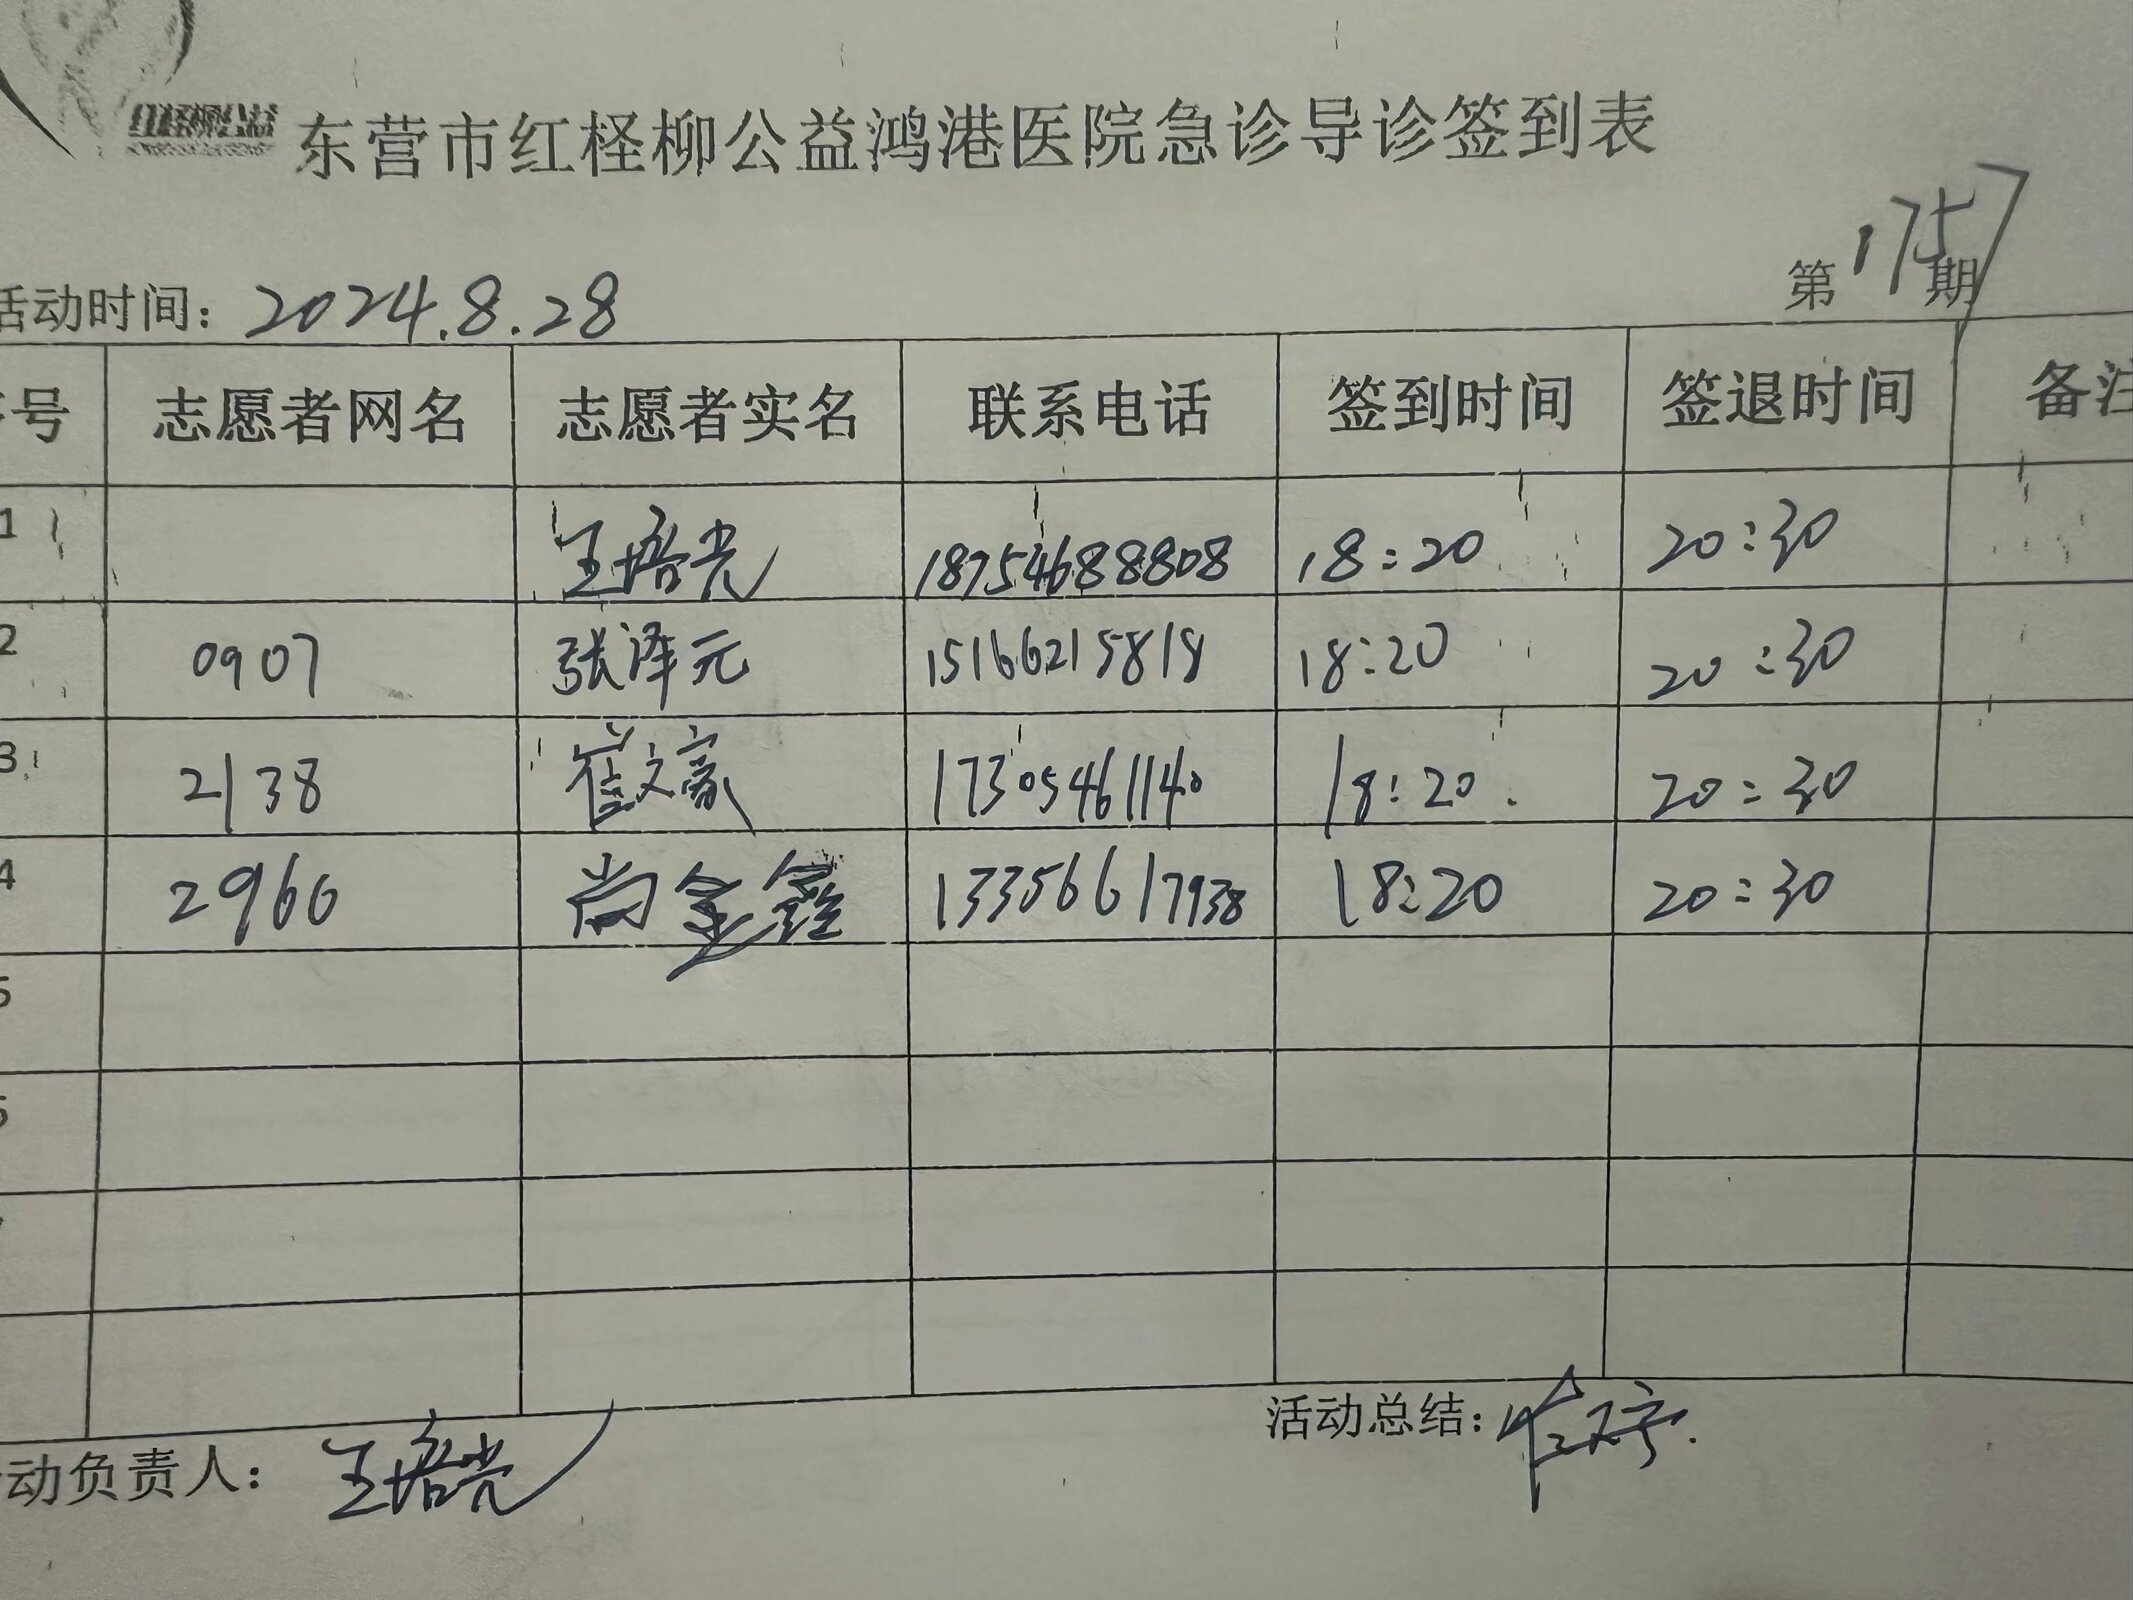 红柽柳公益
东营市红柽柳公益鸿港医院急诊导诊签到表
第1757期
活动时间：2024.8.28
序号 志愿者网名 志愿者实名 联系电话 签到时间 签退时间 备注
1 王培光 18754688808 18:20 20:30
2 0907 张泽元 15166215818 18:20 20:30
3 2138 崔文豪 17305461140 18:20. 20:30
4 2960 尚金鑫 13356617938 18:20 20:30
5
6
活动负责人： 王培光
活动总结：